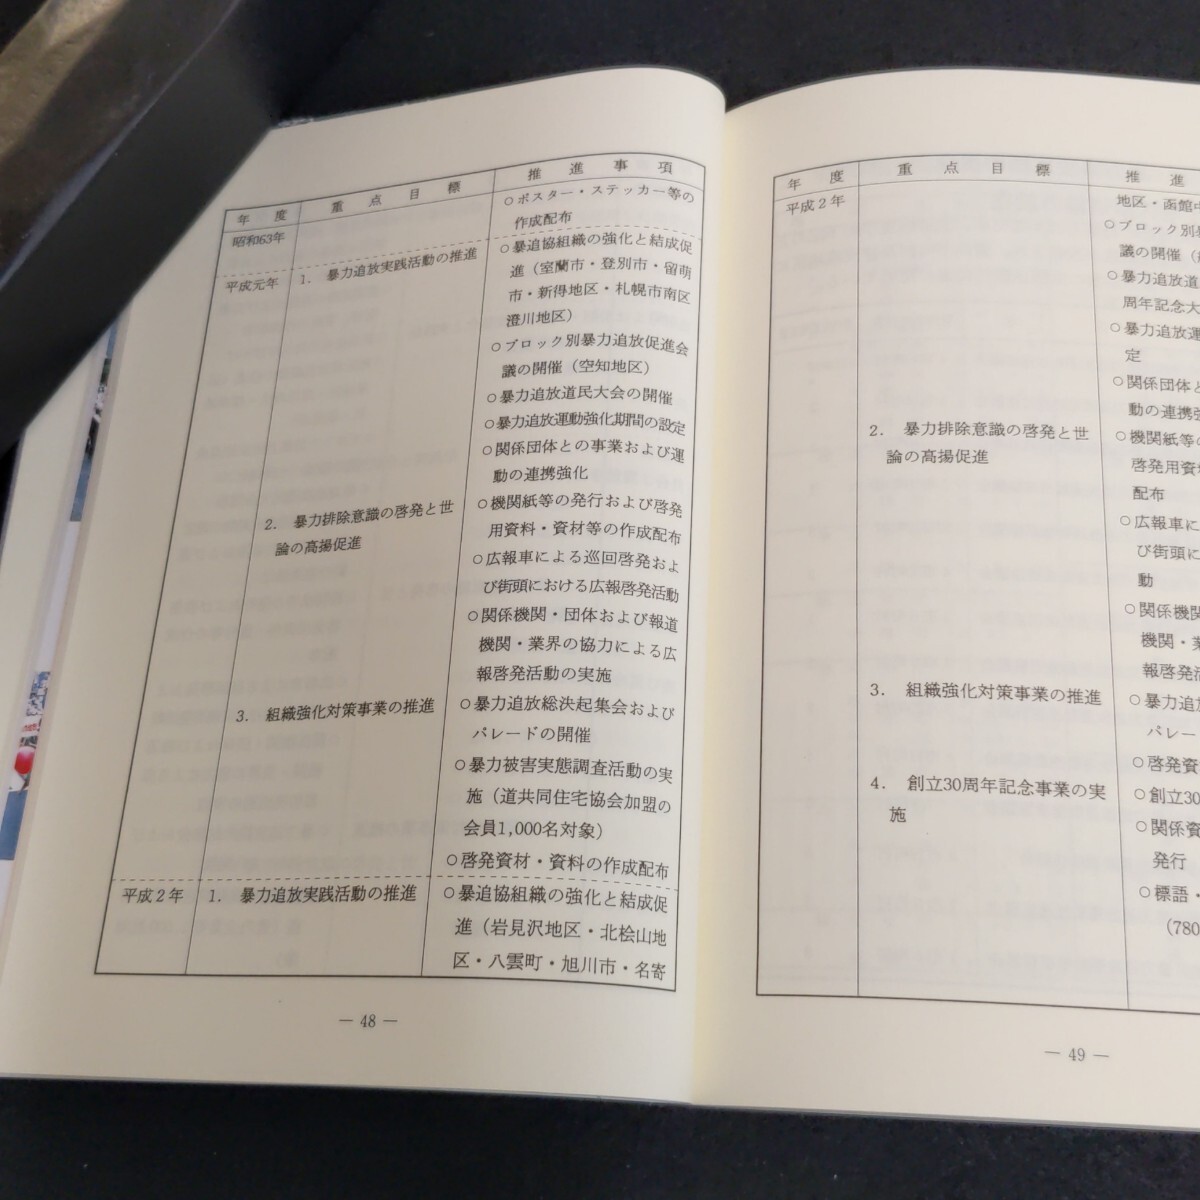 年　度　重　点　目　標　推　進　事　項
昭和63年
○ポスター・ステッカー等の
作成配布
平成元年
1.　暴力追放実践活動の推進
○暴追協組織の強化と結成促
進（室蘭市・登別市・留萌
市・新得地区・札幌市南区
澄川地区）
○ブロック別暴力追放促進会
議の開催（空知地区）
○暴力追放道民大会の開催
○暴力追放運動強化期間の設定
○関係団体との事業および運
動の連携強化
2.　暴力排除意識の啓発と世
論の高揚促進
○機関紙等の発行および啓発
用資料・資材等の作成配布
○広報車による巡回啓発およ
び街頭における広報啓発活動
○関係機関・団体および報道
機関・業界の協力による広
報啓発活動の実施
3.　組織強化対策事業の推進
○暴力追放総決起集会および
パレードの開催
○暴力被害実態調査活動の実
施（道共同住宅協会加盟の
会員1,000名対象）
○啓発資材・資料の作成配布
平成２年
1.　暴力追放実践活動の推進
○暴追協組織の強化と結成促
進（岩見沢地区・北桧山地
区・八雲町・旭川市・名寄
― 48 ―
年　度　重　点　目　標　推　進
平成２年
地区・函館
○ブロック別
議の開催（
○暴力追放道
周年記念大
○暴力追放運
定
○関係団体と
動の連携強
2.　暴力排除意識の啓発と世
論の高揚促進
○機関紙等
啓発用資
配布
○広報車に
び街頭に
動
○関係機関
機関・業
報啓発活
3.　組織強化対策事業の推進
○暴力追
パレー
○啓発資
4.　創立30周年記念事業の実
施
○創立30
○関係資
発行
○標語・
（780
― 49 ―